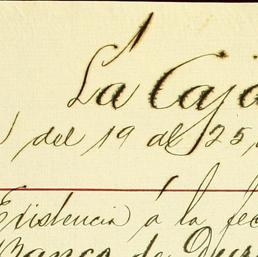 La Caja
del 19 al 25
Existencia á la fec
Banco de Dur